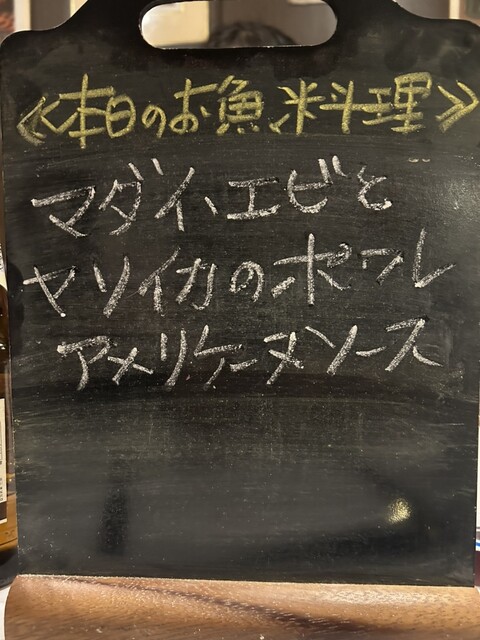 ≪本日のお魚料理≫
マダイ、エビと
ヤソイカのポワレ
アメリケーヌソース